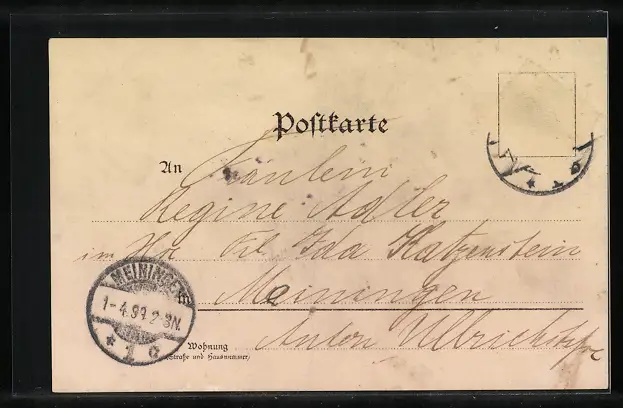 Postkarte
An Fräulein
Regine Adler
im Hse Frl. Ida Katzenstein
Meiningen
Anton Ulrichstr
Wohnung
(Straße und Hausnummer)
MEININGEN
1-4.99 2-3N.
* 1 c